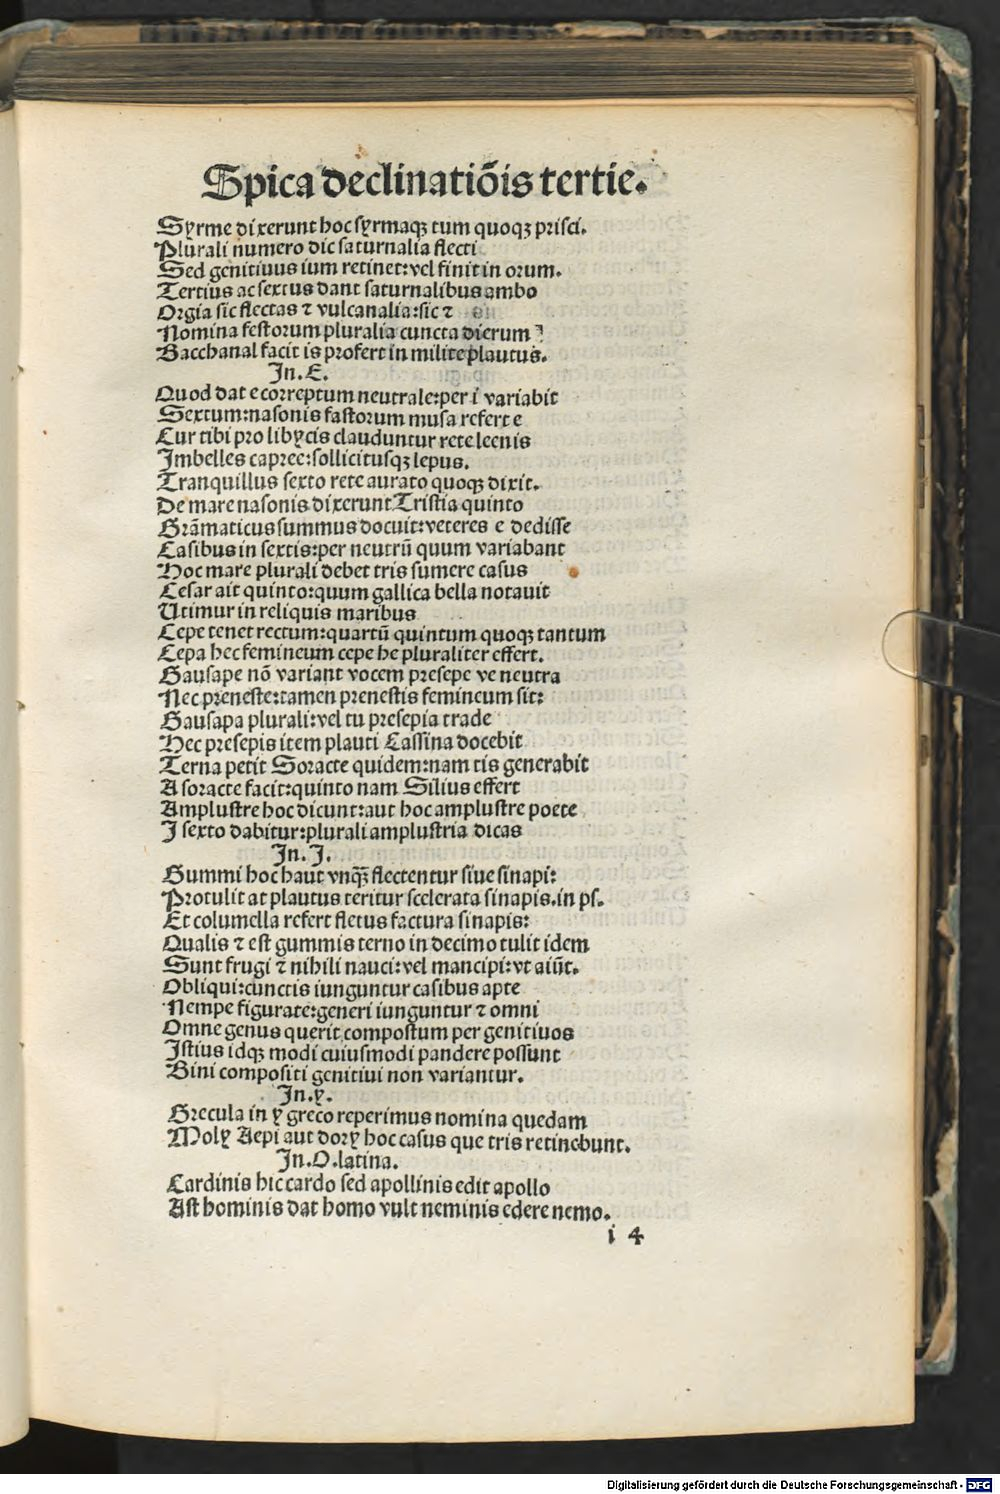 Spica declinatiõis tertie.
Syrme dixerunt hoc syrmaqꝫ tum quoqꝫ prisci.
Plurali numero dic saturnalia flecti
Sed genitiuus ium retinet: vel finit in orum.
Tertius ac sextus dant saturnalibus ambo
Orgia sic flectas ⁊ vulcanalia: sic ⁊
Nomina festorum pluralia cuncta dierum
Bacchanal facit is profert in milite plautus.
In. E.
Quod dat e correptum neutrale: per i variabit
Sextum: nasonis fastorum musa refert e
Cur tibi pro libycis clauduntur rete leenis
Imbelles capree: sollicitusqꝫ lepus.
Tranquillus sexto rete aurato quoqꝫ dixit.
De mare nasonis dixerunt Tristia quinto
Grãmaticus summus docuit: veteres e dedisse
Casibus in sextis: per neutrũ quum variabant
Hoc mare plurali debet tris sumere casus
Cesar ait quinto: quum gallica bella notauit
Utimur in reliquis maribus
Cepe tenet rectum: quartũ quintum quoqꝫ tantum
Cepa hec femineum cepe he pluraliter effert.
Gausape nõ variant vocem presepe ve neutra
Nec preneste: tamen prenestis femineum sit:
Gausapa plurali: vel tu presepia trade
Hec presepis item plauti Cassina docebit
Terna petit Soracte quidem: nam tis generabit
A soracte facit: quinto nam Silius effert
Amplustre hoc dicunt: aut hoc amplustre poete
I sexto dabitur: plurali amplustria dicas
In. I.
Gummi hoc haut vnqꝫ̃ flectentur siue sinapi:
Protulit at plautus teritur scelerata sinapis. in ps.
Et columella refert fletus factura sinapis:
Qualis ⁊ est gummis terno in decimo tulit idem
Sunt frugi ⁊ nihili nauci: vel mancipi: vt aiũt.
Obliqui: cunctis iunguntur casibus apte
Nempe figurate: generi iunguntur ⁊ omni
Omne genus querit compostum per genitiuos
Istius idqꝫ modi cuiusmodi pandere possunt
Bini compositi genitiui non variantur.
In. y.
Grecula in y greco reperimus nomina quedam
Moly Aepi aut dory hoc casus que tris retinebunt.
In. O. latina.
Cardinis hic cardo sed apollinis edit apollo
Ast hominis dat homo vult neminis edere nemo.
i 4
Digitalisierung gefördert durch die Deutsche Forschungsgemeinschaft - DFG